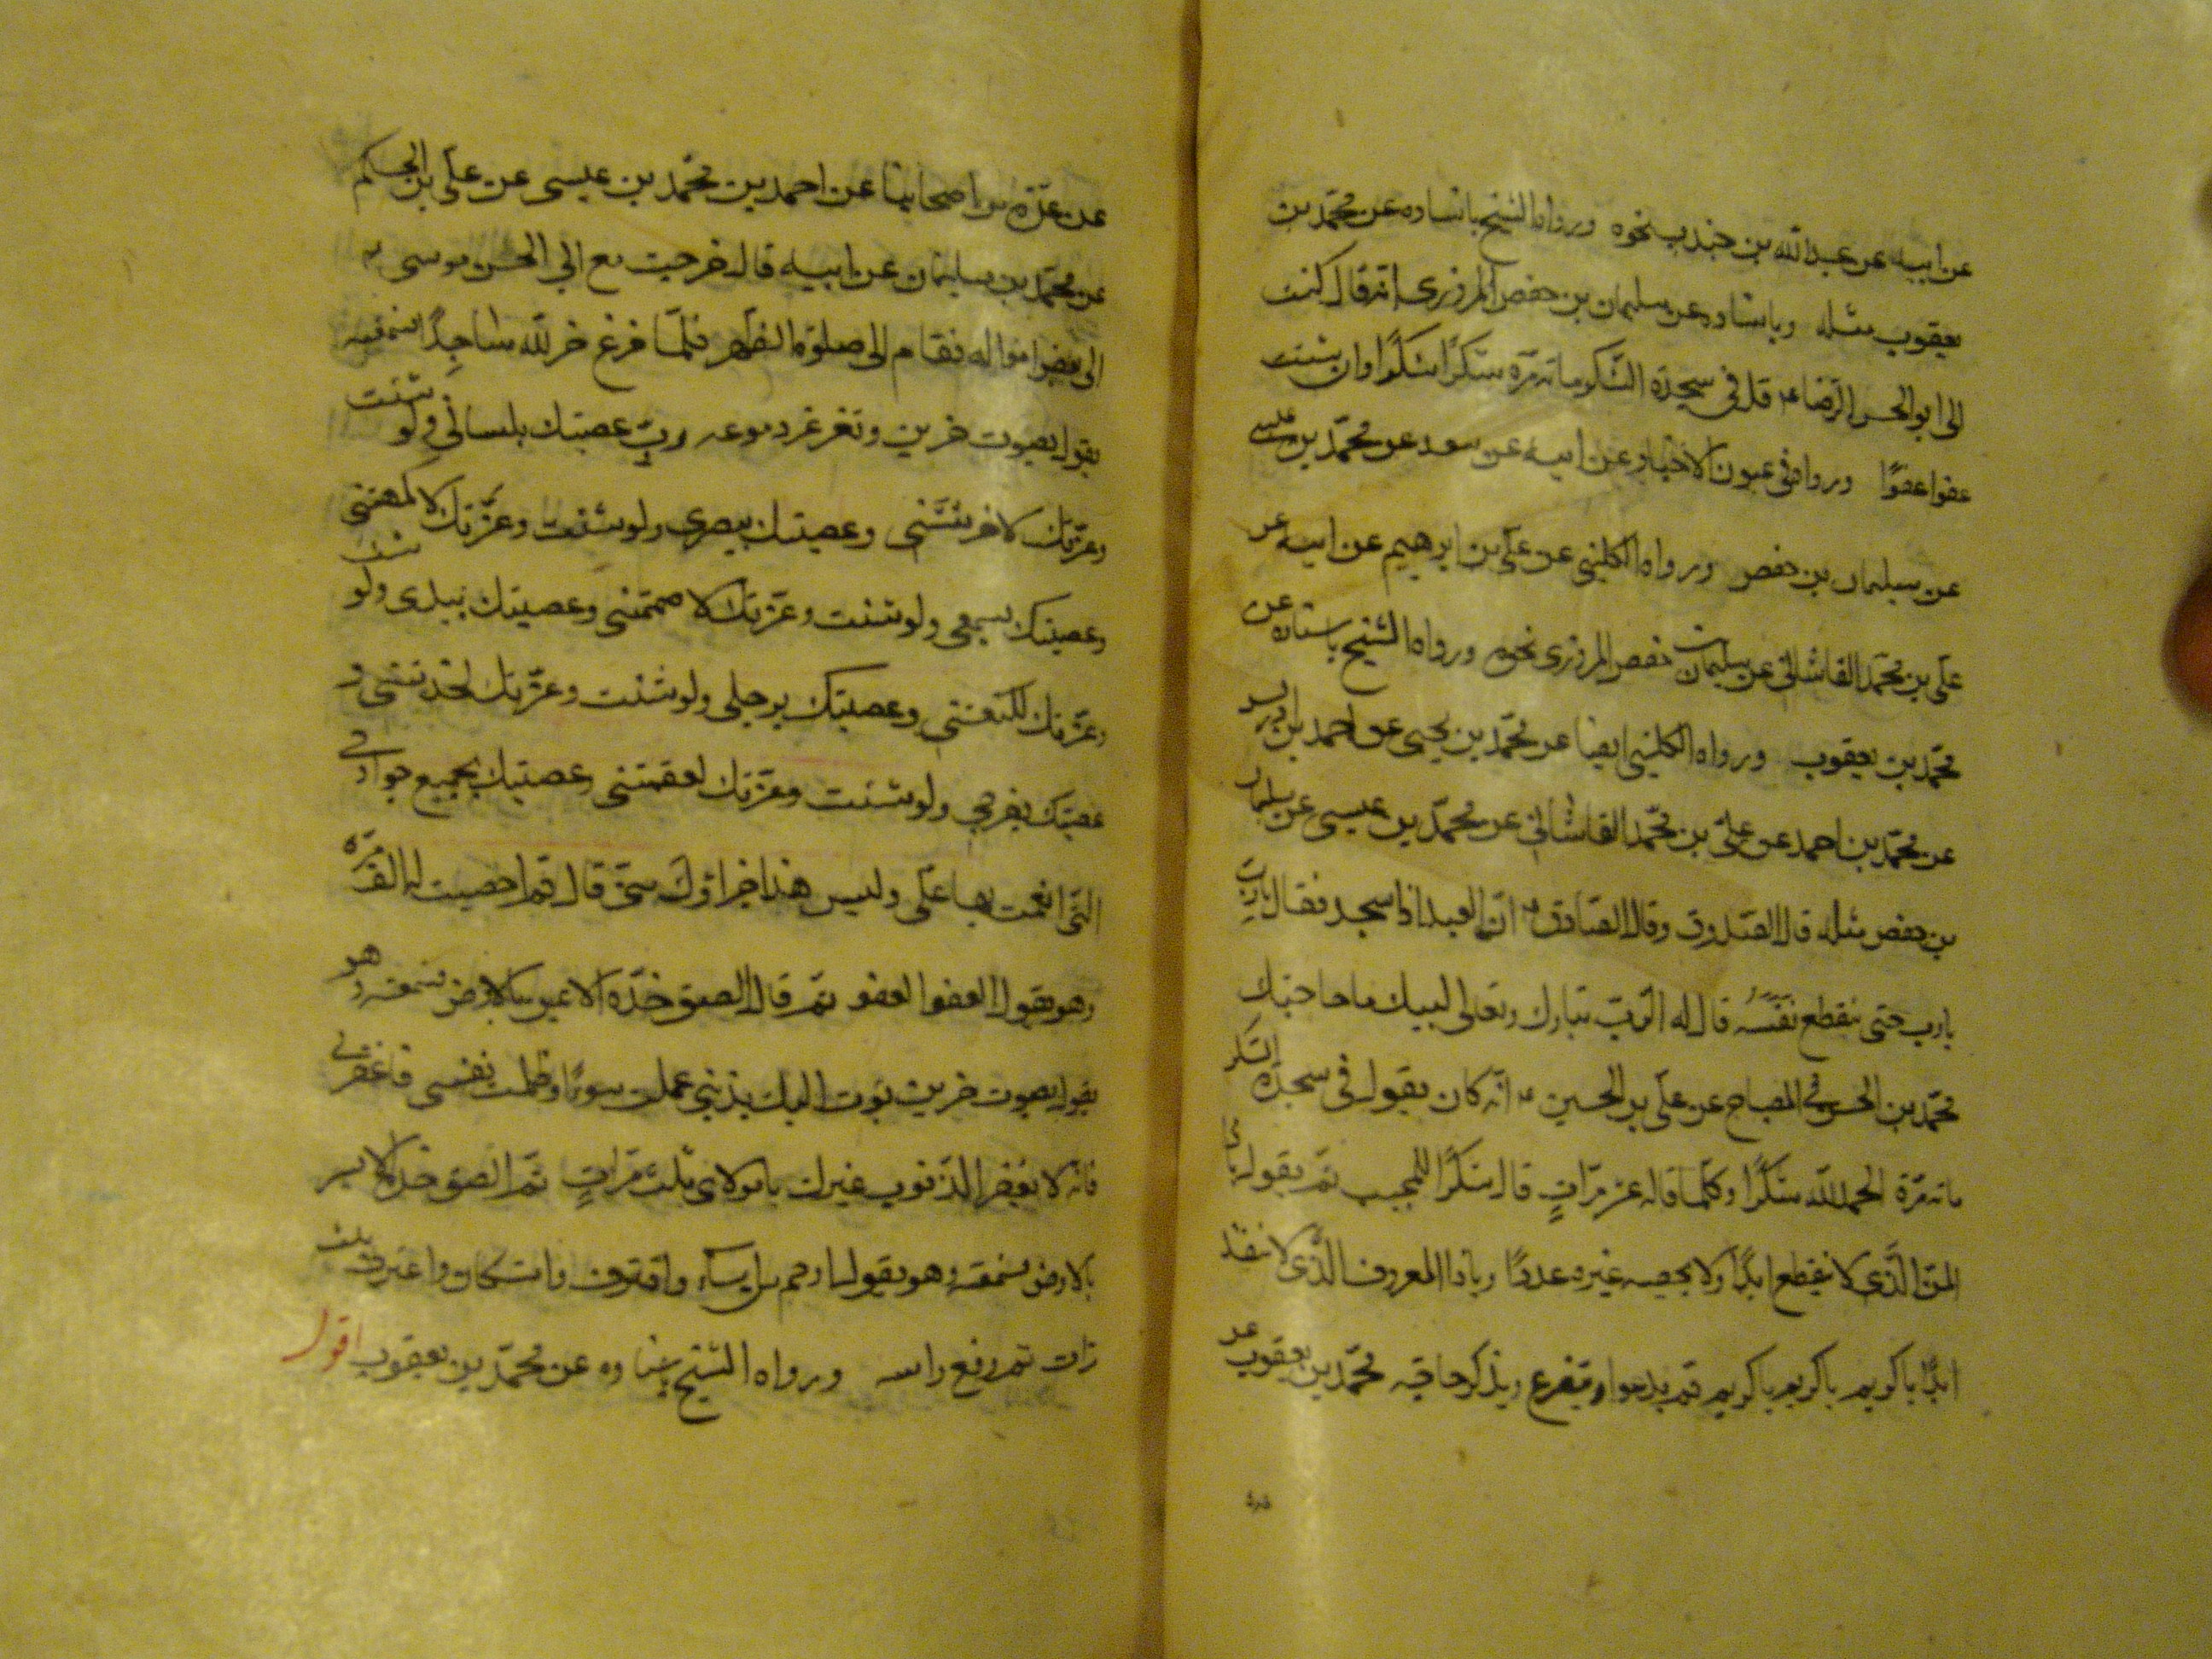 عن ابيه عن عبد الله بن جندب نحوه ورواه الشيخ باسناده عن محمّد بن
يعقوب مثله وباسناده عن سليمان بن حفص المروزى انه قال كتب
الى ابو الحسن الرضا ع قل فى سجدة الشكر مائة مرّة شكرًا شكرًا وان شئت
عفوا عفوًا ورواه فى عيون الاخبار عن ابيه عن سعد عن محمّد بن عيسى
عن سليمان بن حفص ورواه الكلينى عن علىّ بن ابرهيم عن ابيه عن
علىّ بن محمّد القاشانى عن سليمان بن حفص المروزى نحوه ورواه الشيخ باسناده عن
محمّد بن يعقوب ورواه الكلينى ايضا عن محمّد بن يحيى عن احمد بن ادريس
عن محمّد بن احمد عن علىّ بن محمّد القاشانى عن محمّد بن عيسى عن سليمان
بن حفص مثله قال الصّدوق وقال الصّادق ع انّ العبد اذا سجد فقال يا ربّ
يا رب حتى ينقطع نَفَسُه قال له الرّبّ تبارك وتعالى لبيك ما حاجتك
محمّد بن الحسن فى المصباح عن علىّ بن الحسين ع انّه كان يقول فى سجدة الشكر
مائة مرّة الحمد لله شكرًا وكلّما قاله عشر مرّاتٍ قال شكرًا للمجيب ثمّ يقول يا ذا
المنّ الّذى لا ينقطع ابدًا ولا يحصيه غيره عددًا ويا ذا المعروف الّذى لا ينفد
ابدًا يا كريم يا كريم يا كريم ثم يدعوا ويتضرع ويذكر حاجته محمّد بن يعقوب عن
عن عدّة من اصحابنا عن احمد بن محمّد بن عيسى عن علىّ بن الحكم
عن محمّد بن سليمان عن ابيه قال خرجت مع ابى الحسن موسى ع
الى بعض امواله فقام الى صلوة الظهر فلمّا فرغ خر لله ساجدًا فسمعته
يقول بصوت حزين وتغرغر دموعه ربّ عصيتك بلسانى ولو شئت
وعزّتك لاخرستنى وعصيتك ببصرى ولو شئت وعزّتك لاكمهتنى
وعصيتك بسمعى ولو شئت وعزّتك لاصممتنى وعصيتك بيدى ولو شئت
وعزّتك لكنعتنى وعصيتك برجلى ولو شئت وعزّتك لجذمتنى و
عصيتك بفرجى ولو شئت وعزّتك لعقمتنى وعصيتك بجميع جوارحى
التى انعمت بها علىّ وليس هذا جزاؤك منّى قال ثم احصيت له الف مرّة
وهو يقول العفو العفو ثم قال الصق خدّه الايمن بالارض فسمعته وهو
يقول بصوت حزين بؤت اليك بذنبى عملت سوءًا وظلمت نفسى فاغفر لى
فانّه لا يغفر الذّنوب غيرك يا مولاى ثلث مرّاتٍ ثمّ الصق خده الايسر
بالارض فسمعته وهو يقول ارحم من اساء واقترف واستكان واعترف ثلث
مرّات ثم رفع راسه ورواه الشيخ باسناده عن محمّد بن يعقوب اقول